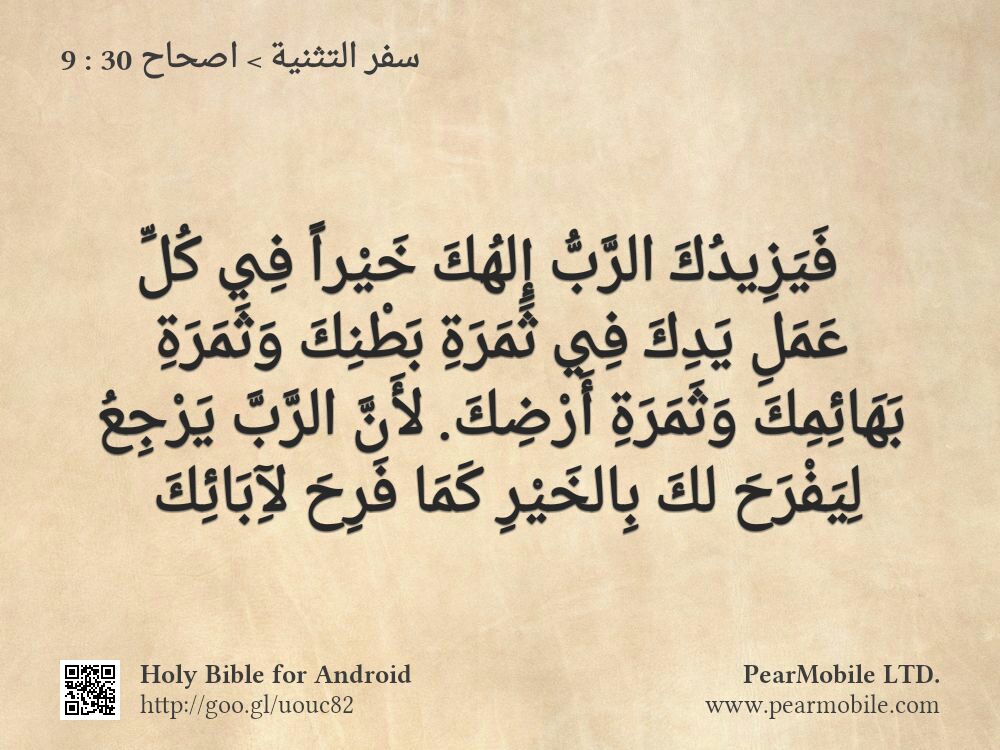 سفر التثنية > اصحاح 30 : 9
فَيَزِيدُكَ الرَّبُّ إِلهُكَ خَيْراً فِي كُلِّ
عَمَلِ يَدِكَ فِي ثَمَرَةِ بَطْنِكَ وَثَمَرَةِ
بَهَائِمِكَ وَثَمَرَةِ أَرْضِكَ. لأَنَّ الرَّبَّ يَرْجِعُ
لِيَفْرَحَ لكَ بِالخَيْرِ كَمَا فَرِحَ لآِبَائِكَ
Holy Bible for Android
http://goo.gl/uouc82
PearMobile LTD.
www.pearmobile.com